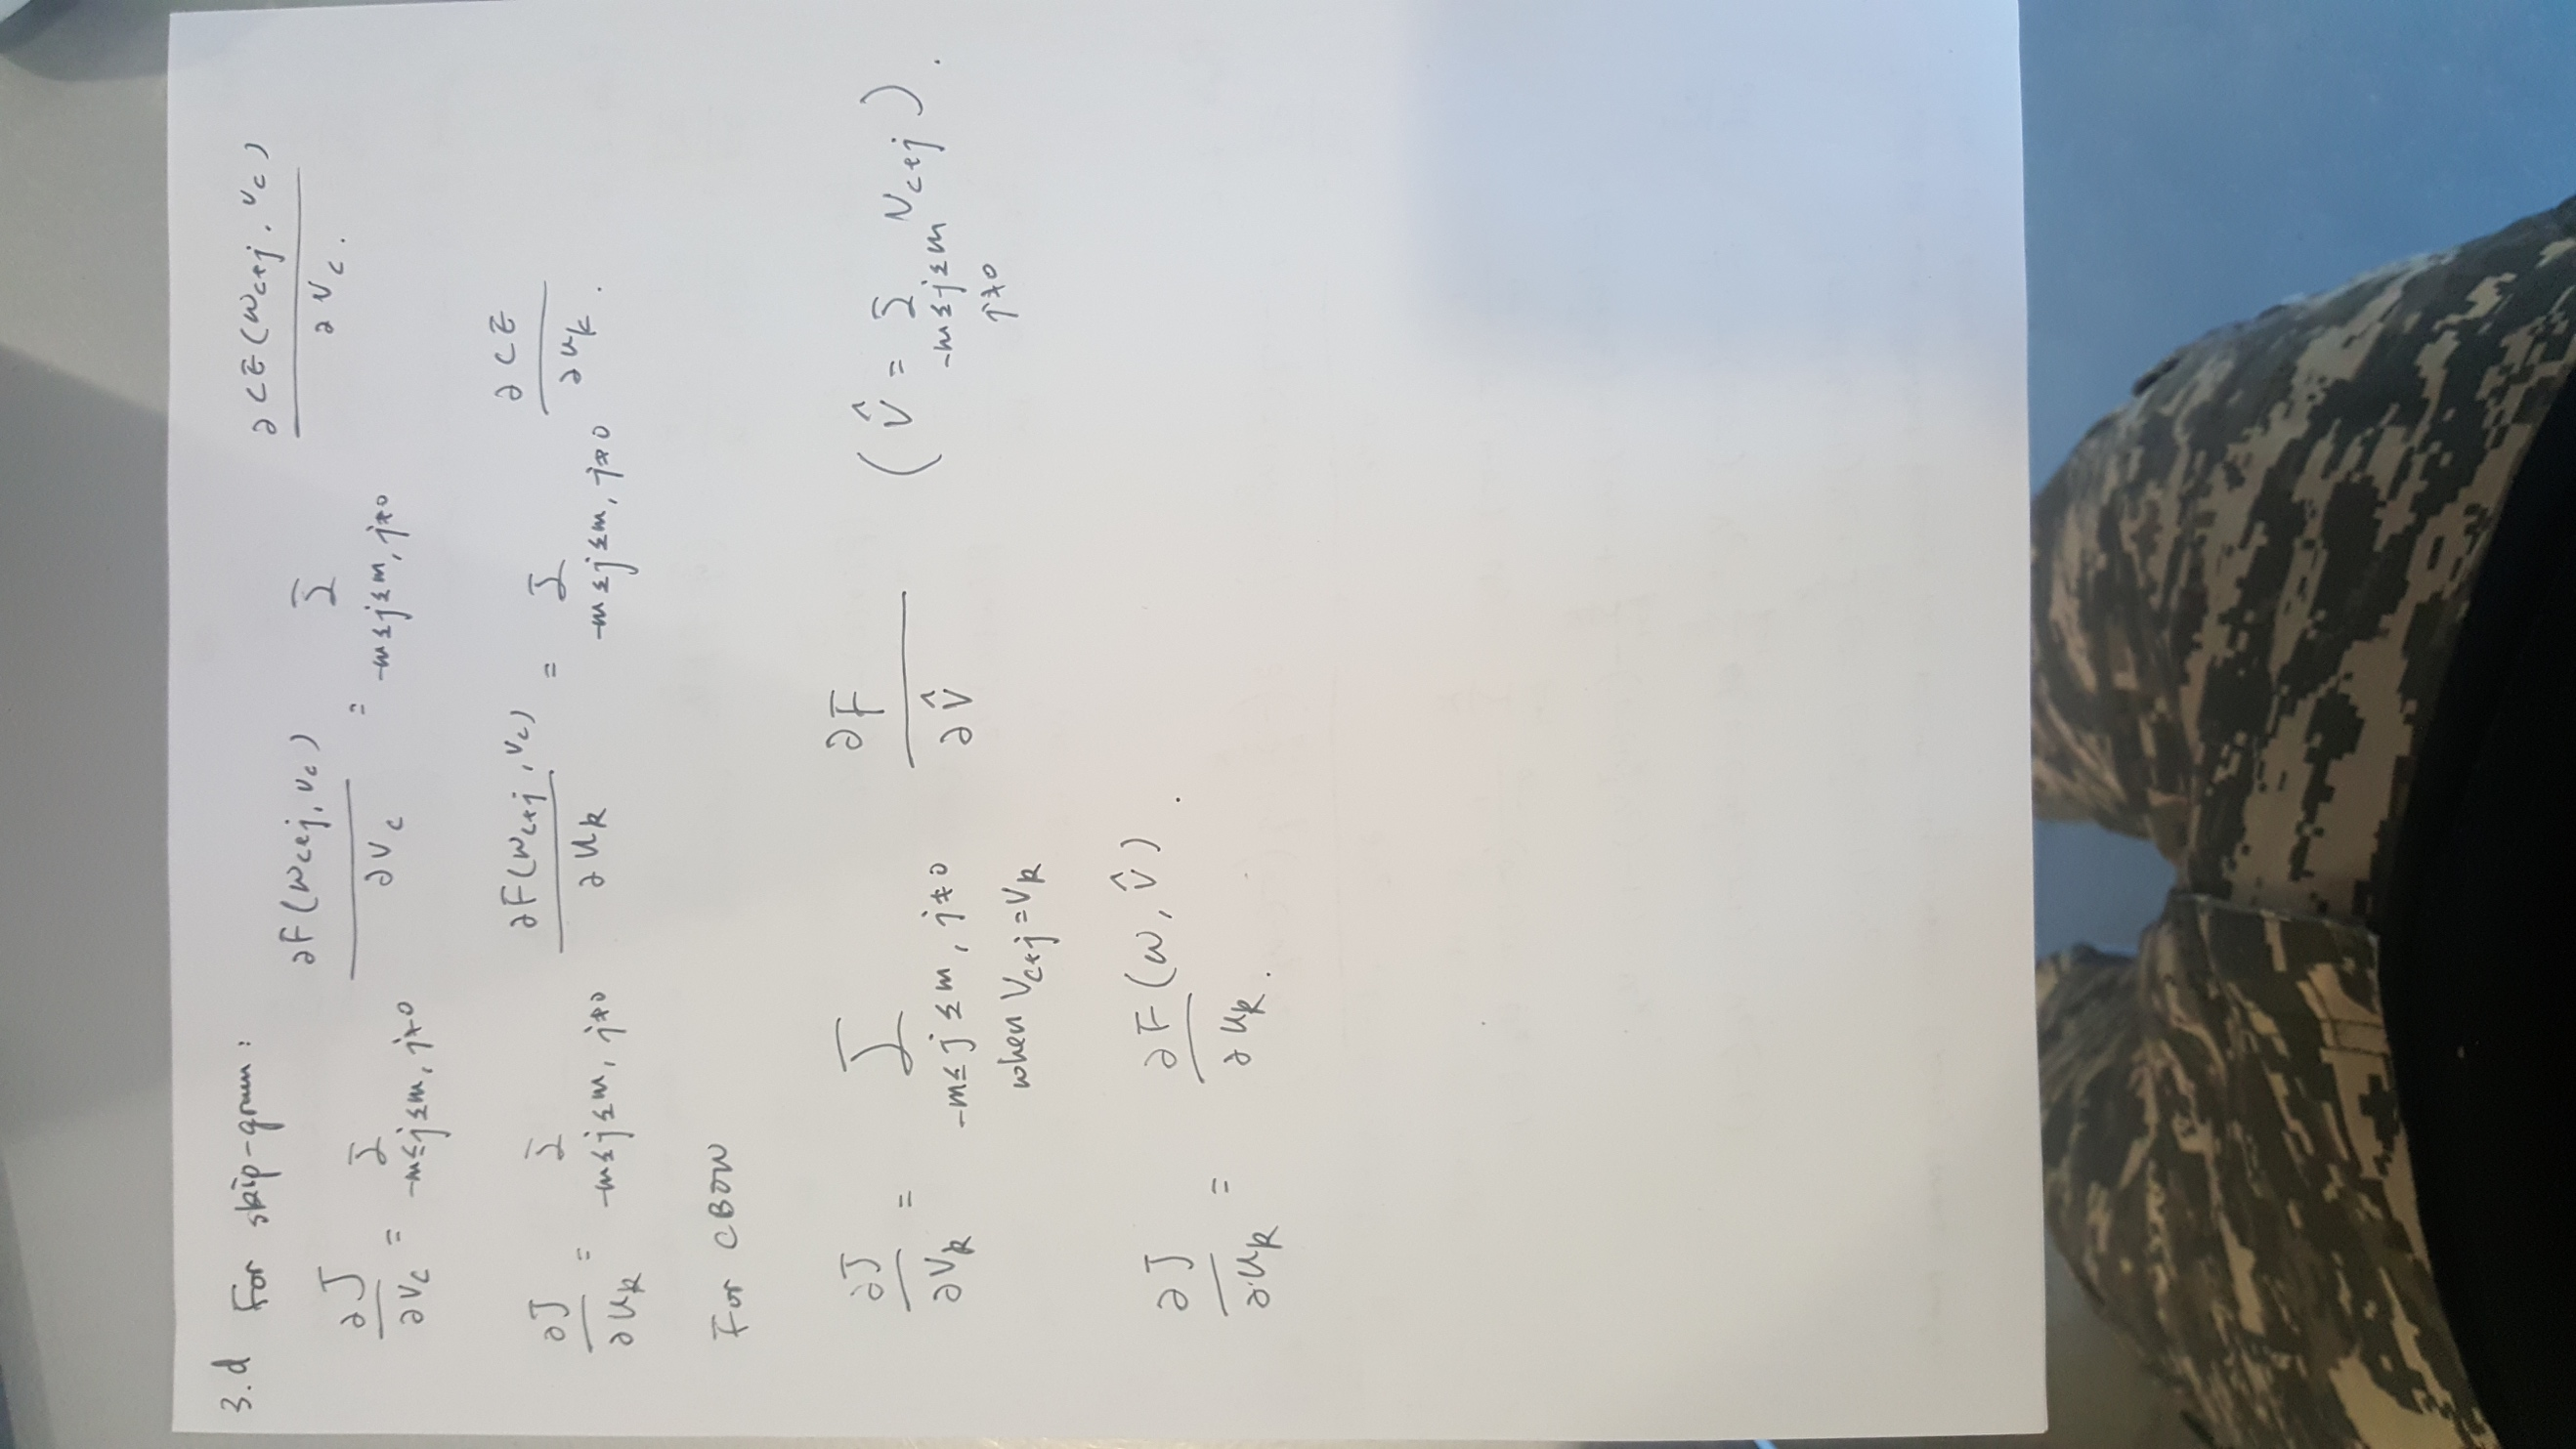 3.d For skip-gram:
∂J/∂v_c = Σ_{-m≤j≤m, j≠0} ∂F(w_{c+j}, v_c)/∂v_c = Σ_{-m≤j≤m, j≠0} ∂CE(w_{c+j}, v_c)/∂v_c.
∂J/∂u_k = Σ_{-m≤j≤m, j≠0} ∂F(w_{c+j}, v_c)/∂u_k = Σ_{-m≤j≤m, j≠0} ∂CE/∂u_k.
For CBOW
∂J/∂v_k = Σ_{-m≤j≤m, j≠0 when v_{c+j}=v_k} ∂F/∂v̂ (v̂ = Σ_{-m≤j≤m j≠0} v_{c+j}).
∂J/∂u_k = ∂F(w, v̂)/∂u_k.